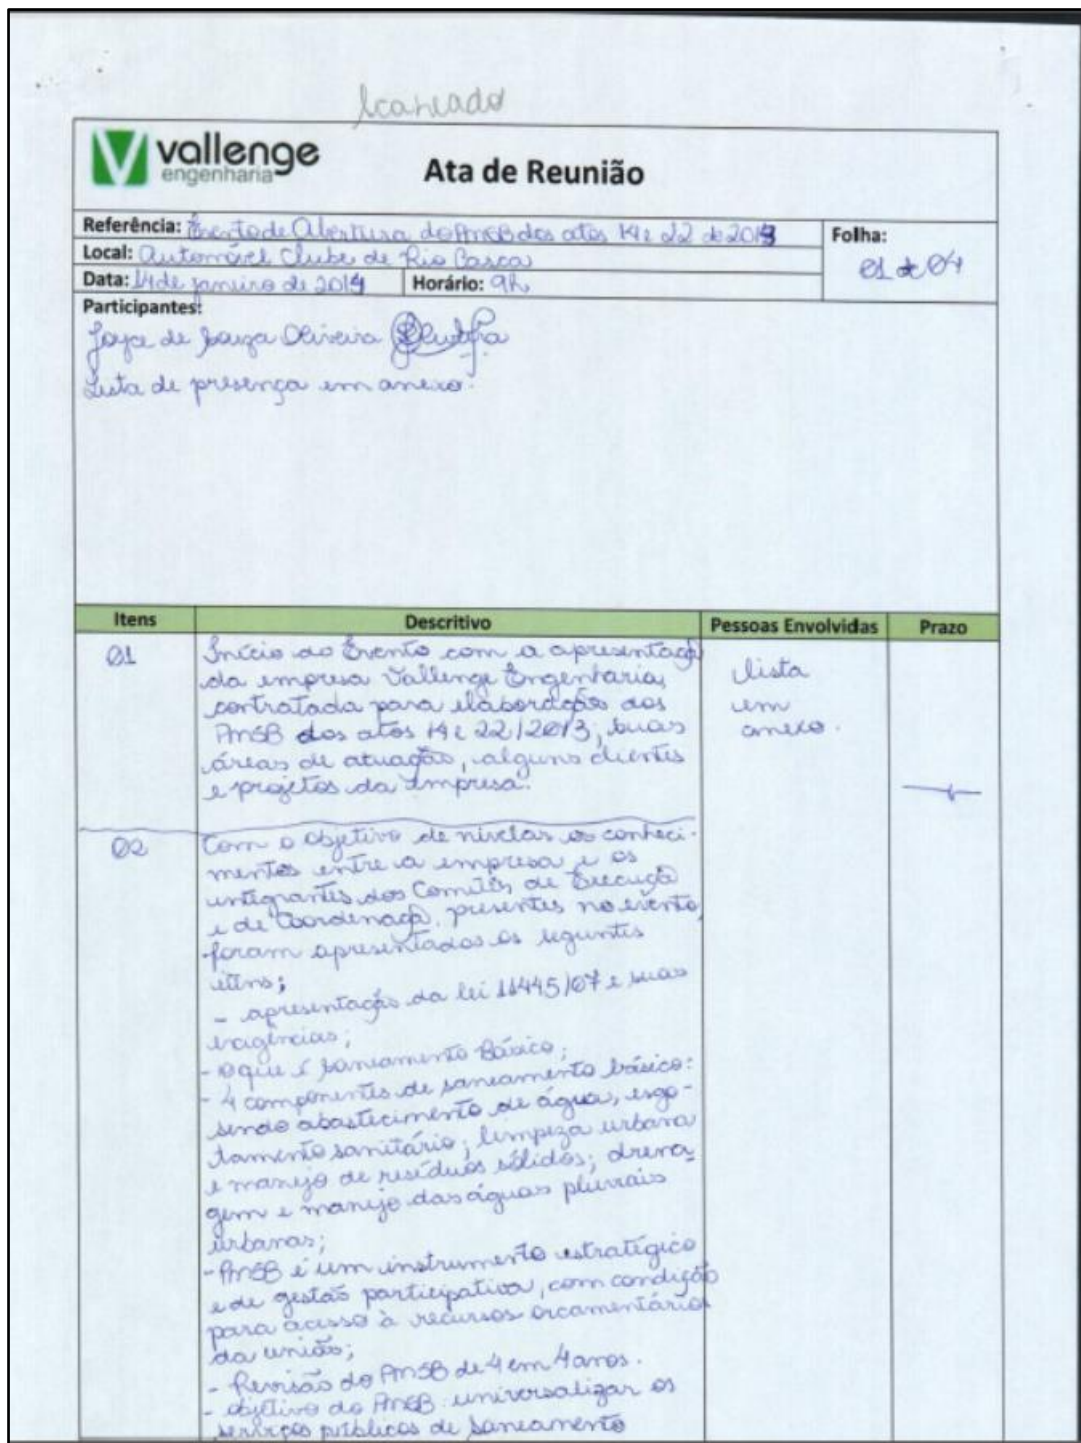 Scaneado
vallenge
engenharia
Ata de Reunião
Referência: Evento de Abertura do PMSB dos atos 14 e 22 de 2013
Folha:
01 de 04
Local: Automóvel Clube de Rio Casca
Data: 14 de janeiro de 2014 Horário: 9h
Participantes:
Joyce de Souza Oliveira
Lista de presença em anexo.
Itens Descritivo Pessoas Envolvidas Prazo
01
Início do Evento com a apresentaçã
da empresa Vallenge Engenharia,
contratada para elaboração dos
PMSB dos atos 14 e 22/2013; suas
áreas de atuação, alguns clientes
e projetos da empresa.
lista
em
anexo.
02
Com o objetivo de nivelar os conheci-
mentos entre a empresa e os
integrantes dos Comitês de Execuçã
e de Coordenaçã, presentes no evento,
foram apresentados os seguintes
itens;
- apresentação da lei 11445/07 e suas
exigências;
- o que é saneamento Básico;
- 4 componentes de saneamento básico:
sendo abastecimento de água, esgo-
tamento sanitário; limpeza urbana
e manejo de resíduos sólidos; drena-
gem e manejo das águas pluviais
urbanas;
- PMSB é um instrumento estratégico
e de gestão participativa, com condição
para acesso à recursos orcamentários
da união;
- Revisão do PMSB de 4 em 4 anos.
- objetivo do PMSB: universalizar os
serviços públicos de saneamento